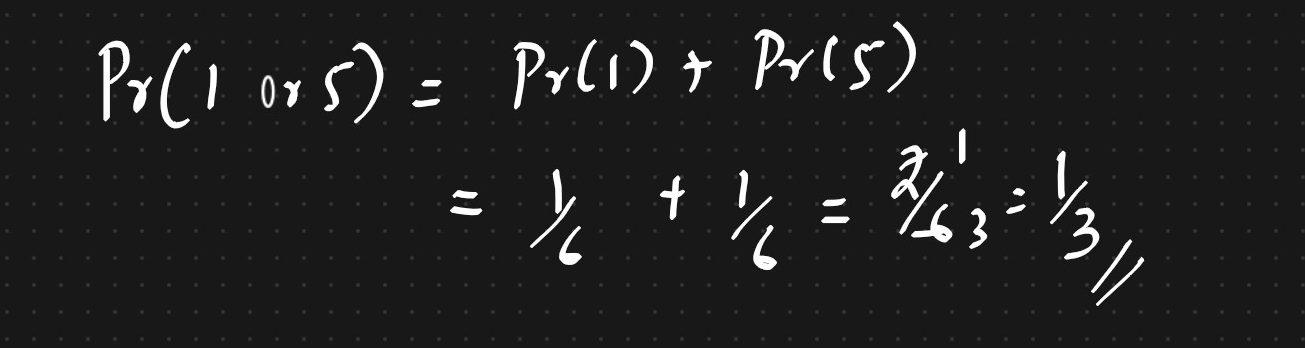 Pr(1 or 5) = Pr(1) + Pr(5)
= 1/6 + 1/6 = 2/6 1 3 = 1/3 //